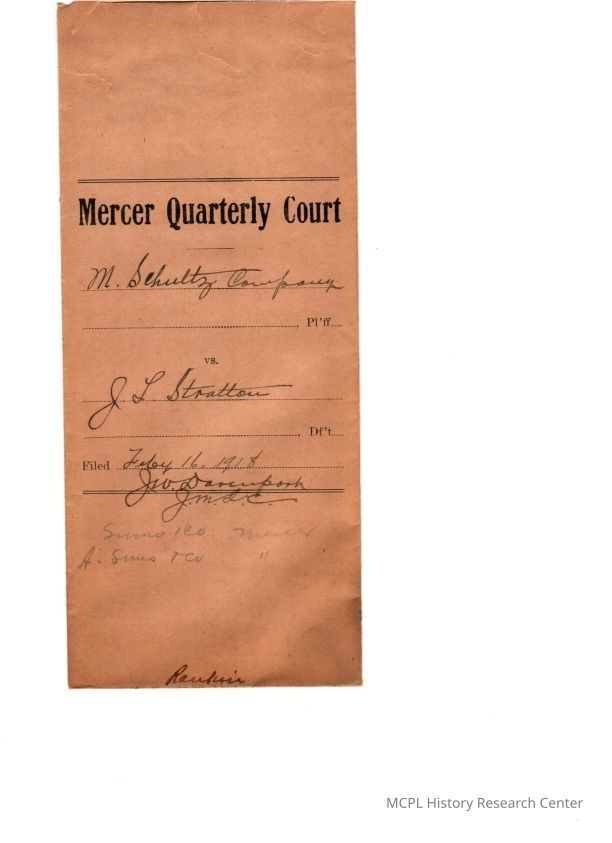 Mercer Quarterly Court
M. Schultz Company
, Pl'ff.
vs.
J. L. Stratton
, Df't.
Filed Feby 16, 1918
J W Davenport
Sums &Co. Mercer
A. Sums &Co "
Rankin
MCPL History Research Center